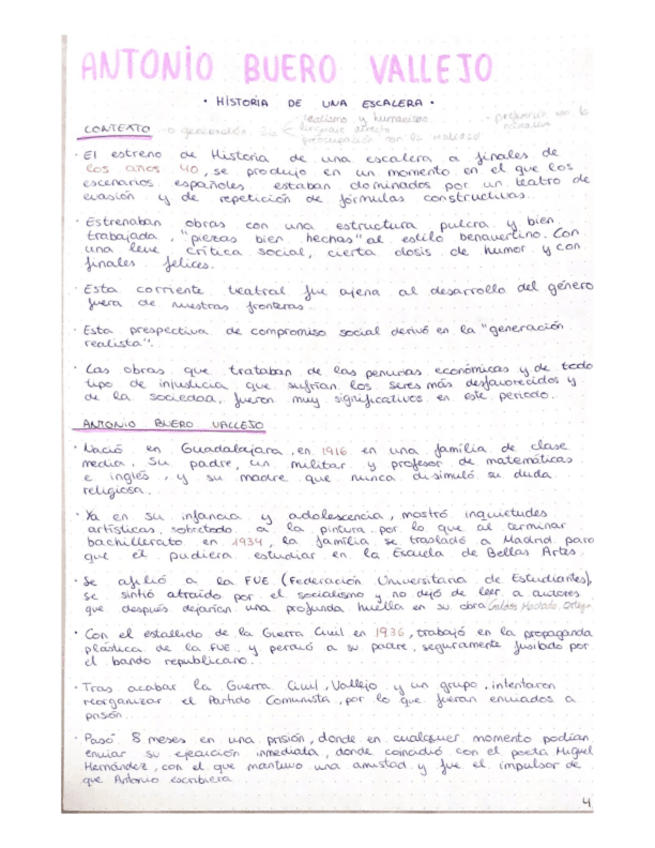 ANTONIO BUERO VALLEJO
· HISTORIA DE UNA ESCALERA ·
realismo y humanismo
CONTEXTO → generación lenguaje directo
preocupación con
· El estreno de Historia de una escalera a finales de
los años 40, se produjo en un momento en el que los
escenarios españoles estaban dominados por un teatro de
evasión y de repetición de fórmulas constructivas.
· Estrenaban obras con una estructura pulcra y bien
trabajada, "piezas bien hechas" al estilo benaventino. Con
una leve crítica social, cierta dosis de humor y con
finales felices.
· Esta corriente teatral fue ajena al desarrollo del género
fuera de nuestras fronteras
· Esta prespectiva de compromiso social derivó en la "generación
realista".
· Las obras que trataban de las penurias económicas y de todo
tipo de injusticia que sufrían los seres más desfavorecidos y
de la sociedad, fueron muy significativos en este periodo.
ANTONIO BUERO VALLEJO
· Nació en Guadalajara, en 1916 en una familia de clase
media. Su padre, un militar y profesor de matemáticas
e inglés, y su madre que nunca disimuló su duda
religiosa.
· Ya en su infancia y adolescencia, mostró inquietudes
artísticas, sobretodo a la pintura por lo que al terminar
bachillerato en 1934, la familia se trasladó a Madrid para
que él pudiera estudiar en la Escuela de Bellas Artes.
· Se afilió a la FUE (Federación Universitaria de Estudiantes),
se sintió atraído por el socialismo y no dejó de leer a autores
que después dejarían una profunda huella en su obra Galdós Machado, Ortega
· Con el estallido de la Guerra Civil en 1936, trabajó en la propaganda
plástica de la FUE y perdió a su padre, seguramente fusilado por
el bando republicano.
· Tras acabar la Guerra Civil, Vallejo y un grupo, intentaron
reorganizar el Partido Comunista, por lo que fueran enviados a
prisión.
· Pasó 8 meses en una prisión, donde en cualquier momento podían
enviar su ejecución inmediata, donde coincidió con el poeta Miguel
Hernández, con el que mantuvo una amistad y fue el impulsor de
que Antonio escribiera
4